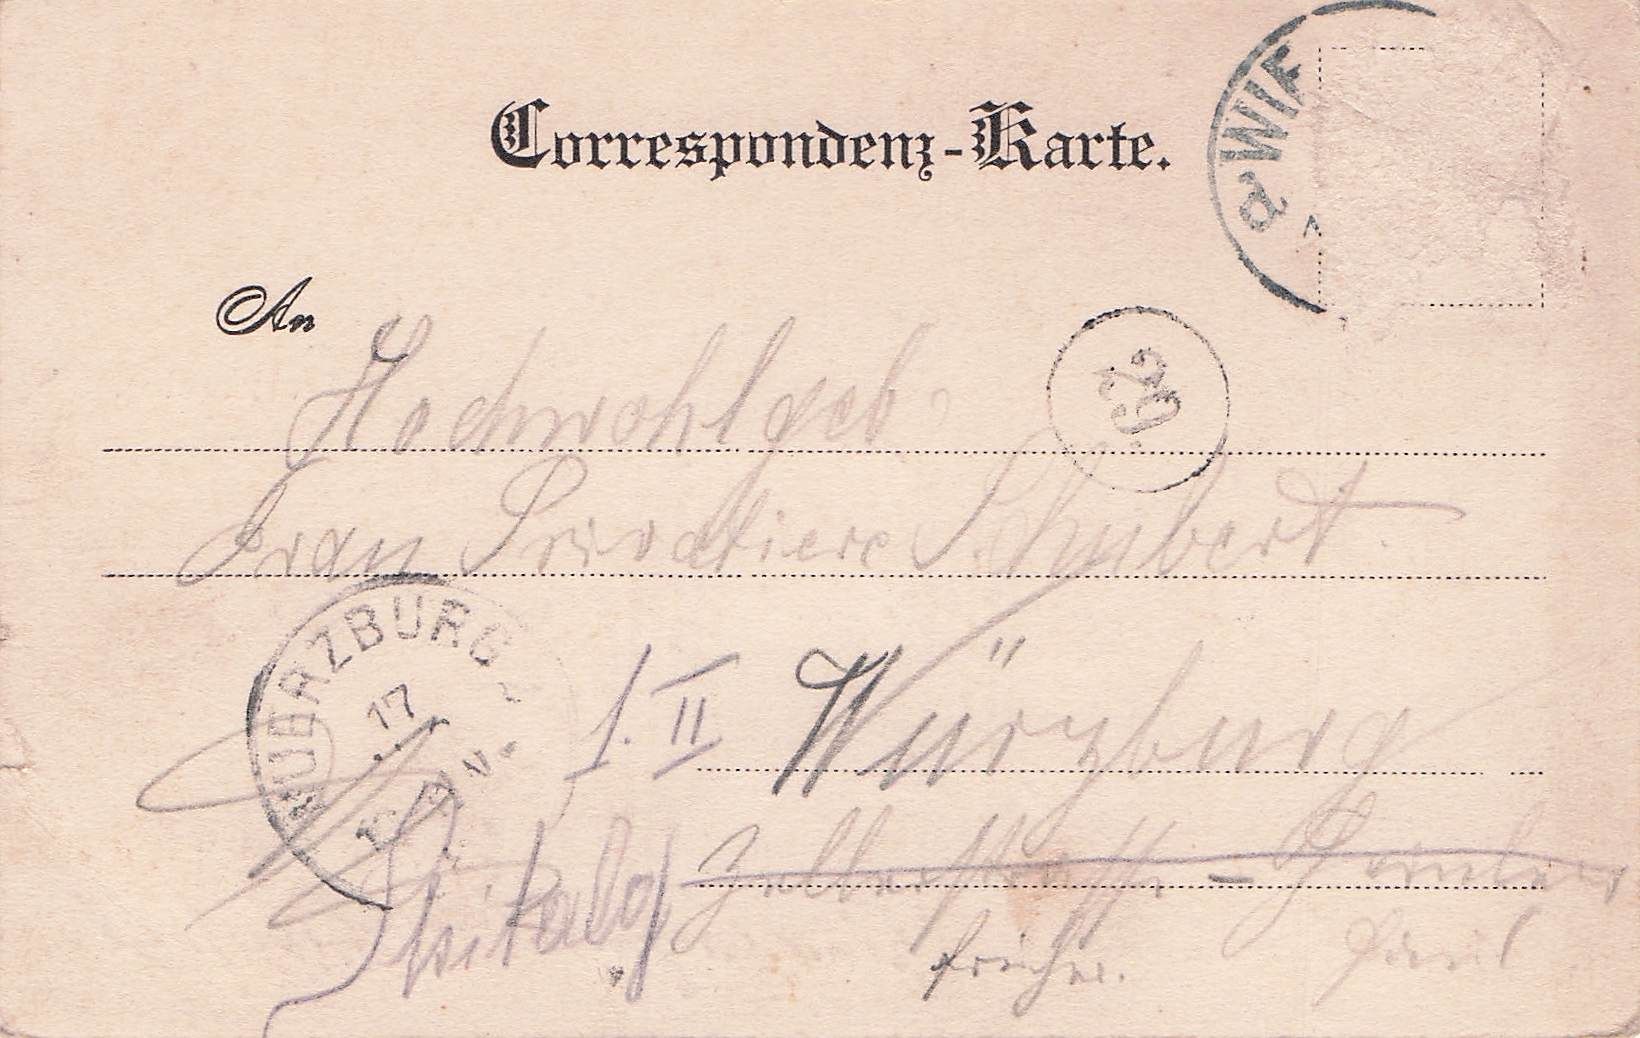 Correspondenz-Karte.
WIE
An
Hochwohlgeb.
29
Frau Privatiere Schubert.
WUERZBURG
17
I. II Würzburg
Zellerstraße -
Spitalg
früher.